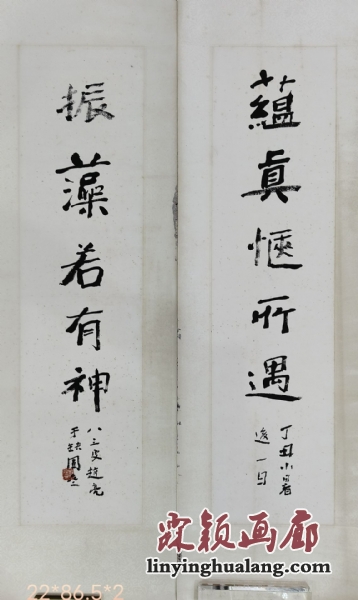 蘊眞愜所遇
丁丑小暑
後一日
振藻若有神
八三叟趙亮
于缺圓
霖颖画廊
linyinghualang.com
22*86.5*2